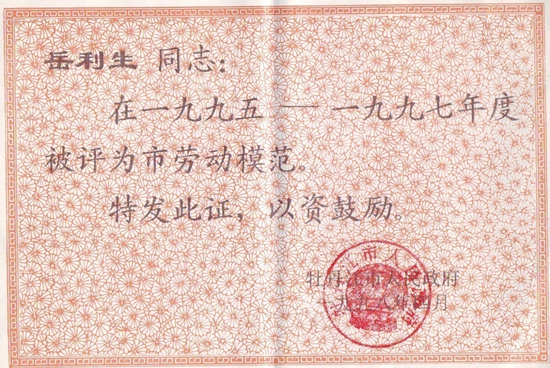 岳利生 同志:
在一九九五——一九九七年度
被评为市劳动模范。
特发此证,以资鼓励。
牡丹江市人民政府
一九九八年四月